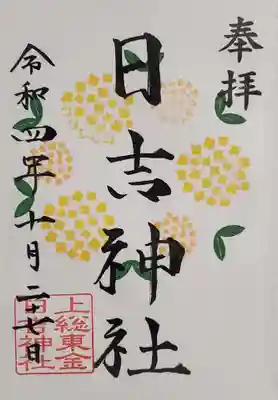 奉拝
日吉神社
上総東金
日吉神社
令和四年十月二十七日